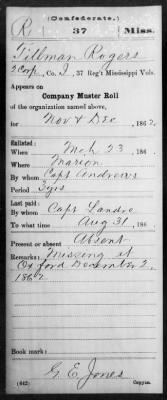 (Confederate.)
R 37 Miss.
Tillman Rogers
2 Corp, Co. I, 37 Reg't Mississippi Vols.
Appears on
Company Muster Roll
of the organization named above,
for Nov & Dec, 1862.
Enlisted:
When Mch 23, 186
Where Marion
By whom Capt Andrews
Period 3 yrs
Last paid:
By whom Capt Landre
To what time Aug 31, 186
Present or absent Absent
Remarks: Missing at
Oxford December 2,
1862
Book mark:
G. E. Jones
(642) Copyist.